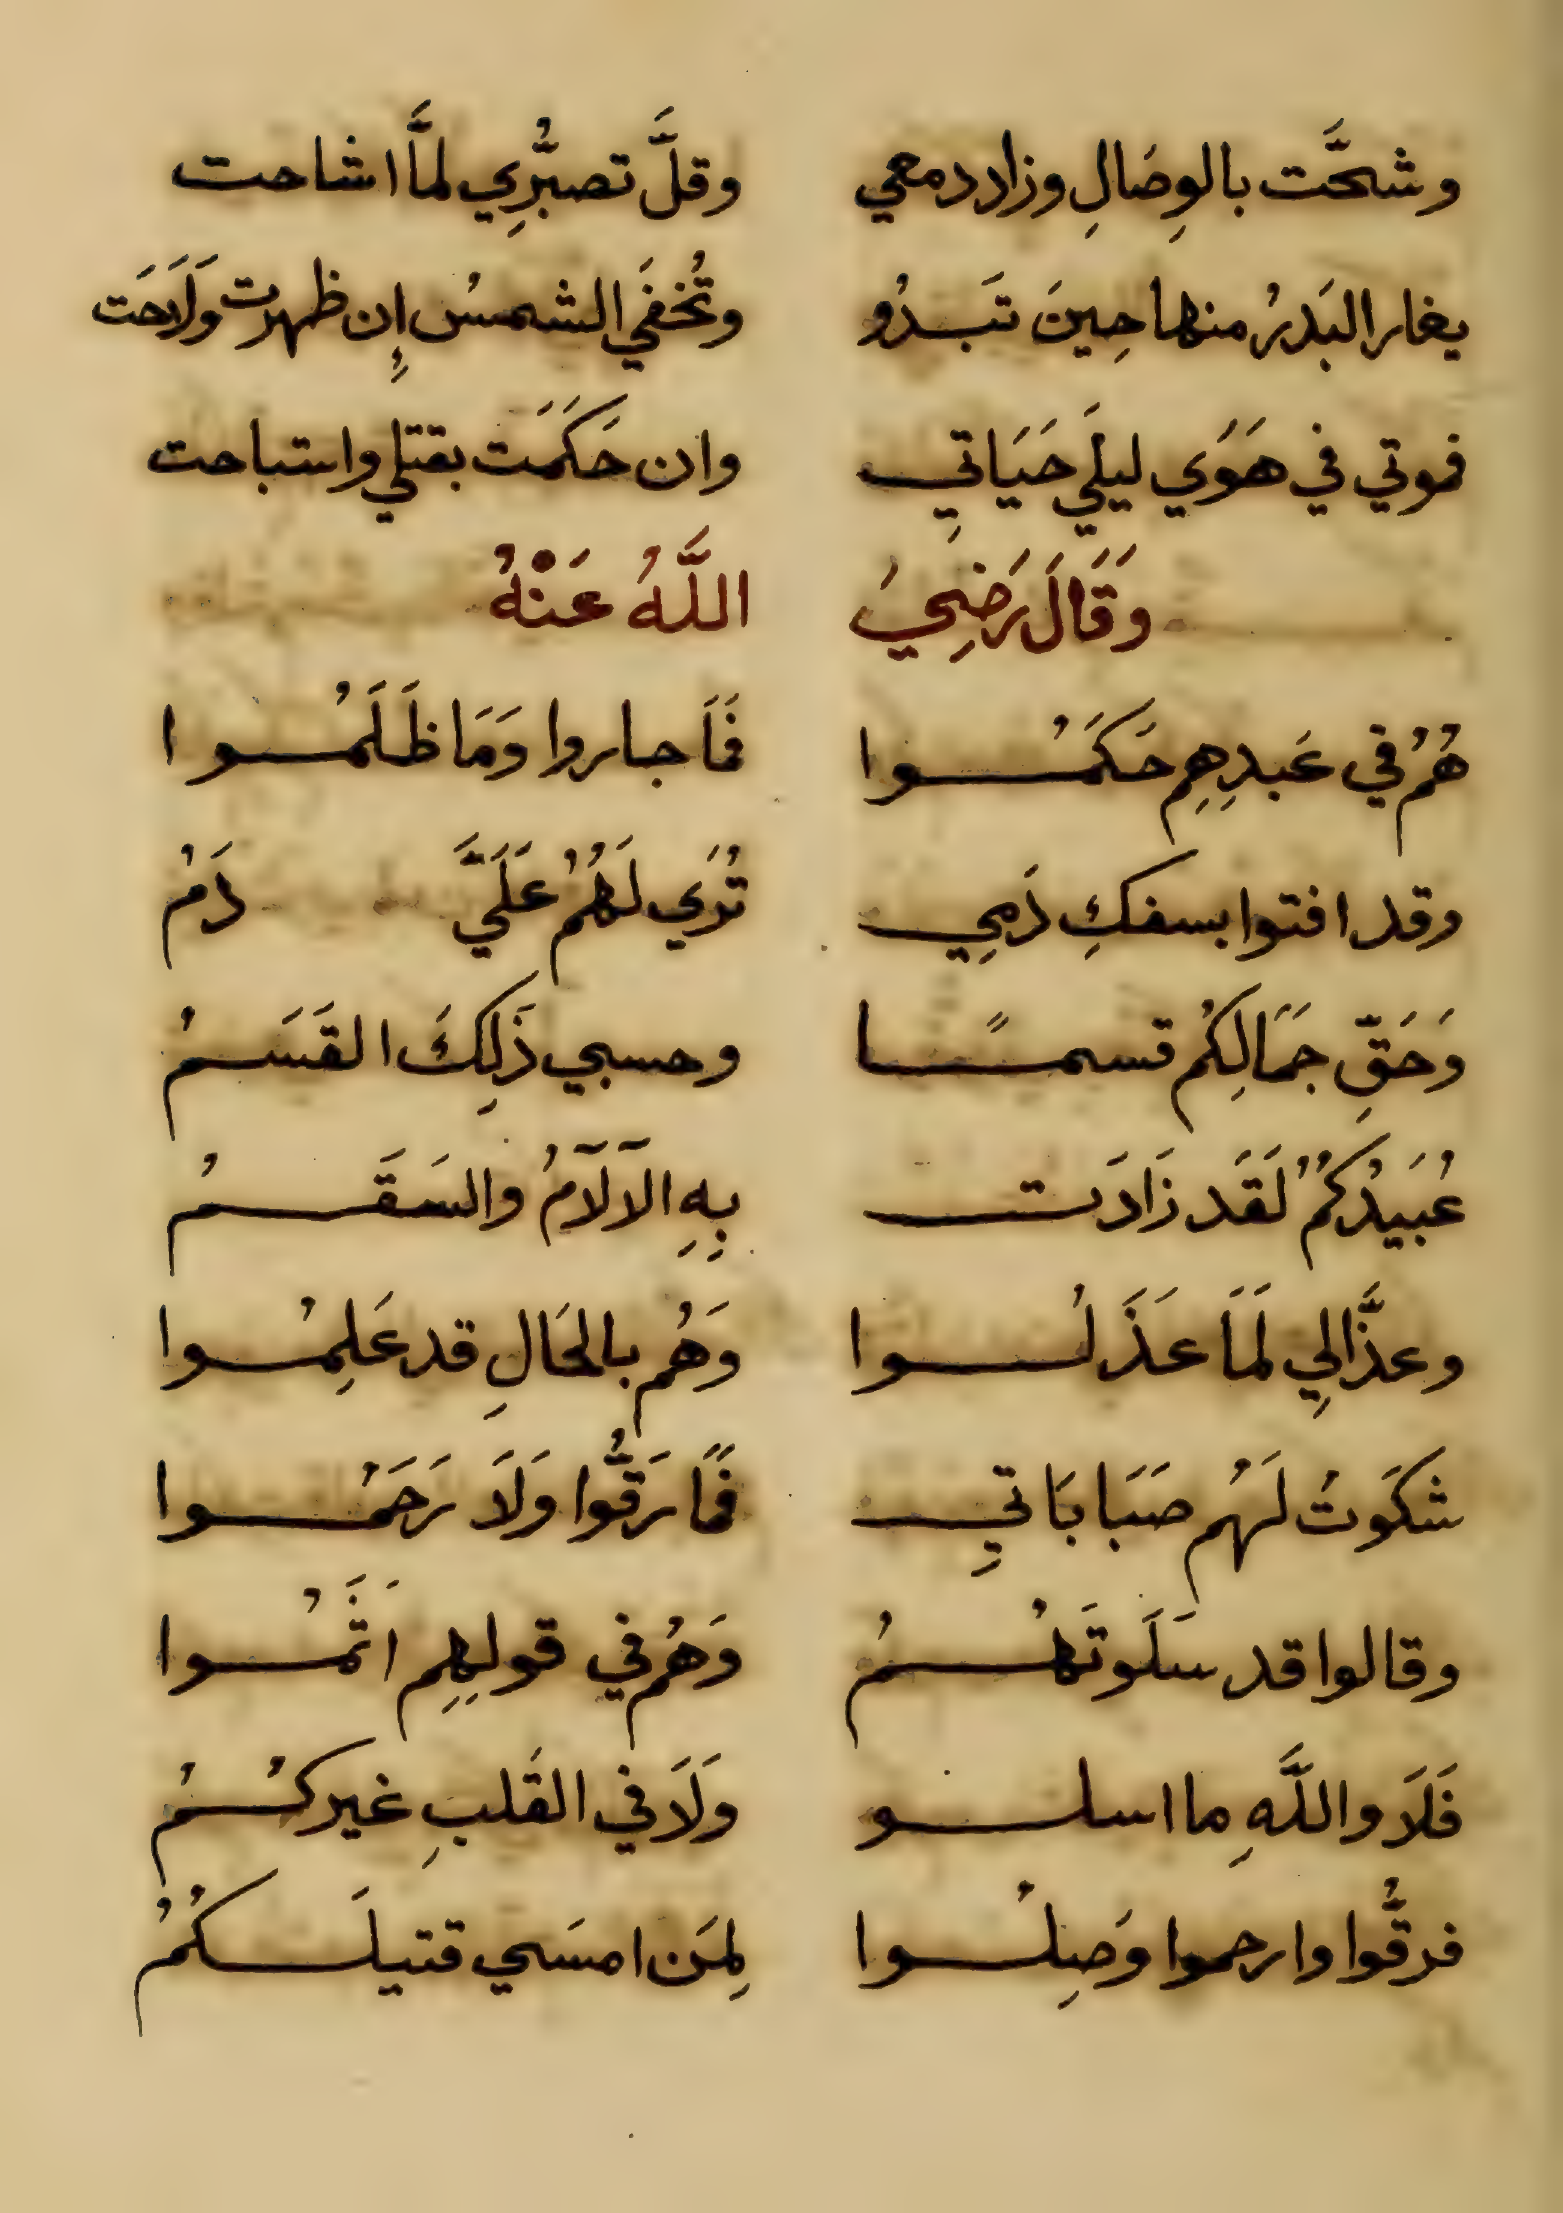 وشحَّت بالوِصَالِ وزاد دمعي وقلَّ تصبُّرِي لمَّا اشاحت
يغار البَدرُ منها حِينَ تَبدُو وتُخفَي الشمسُ إِن ظهرت وَلَاحَت
فموتي في هَوَي ليلَي حَيَاتِي وان حَكَمَت بقتلي واستباحت
وَقَالَ رَضِيَ اللَّهُ عَنْهُ
هُمُ في عَبدِهِم حَكَمُوا فَمَا جاروا وَمَا ظَلَمُوا
وقد افتوا بسفكِ دَمِي تُرَي لَهُمُ عَلَيَّ دَمُ
وَحَقِّ جَمَالِكُم قسمًا وحسبي ذَلِكَ القَسَمُ
عُبَيدُكُمُ لَقَد زَادَت بِهِ الآلَآمُ والسَقَمُ
وعذَّالِي لَمَا عَذَلُوا وَهُم بالحَالِ قد عَلِمُوا
شكَوتُ لَهُم صَبَابَاتِي فَمَا رَقُّوا وَلَا رَحَمُوا
وقالوا قد سَلَوتَهُمُ وَهُم في قولِهِم اَثَمُوا
فَلَا واللَّهِ ما اسلو وَلَا في القَلبِ غيركُمُ
فرقُّوا وارحموا وَصِلُوا لِمَن امسَي قتيلَكُمُ